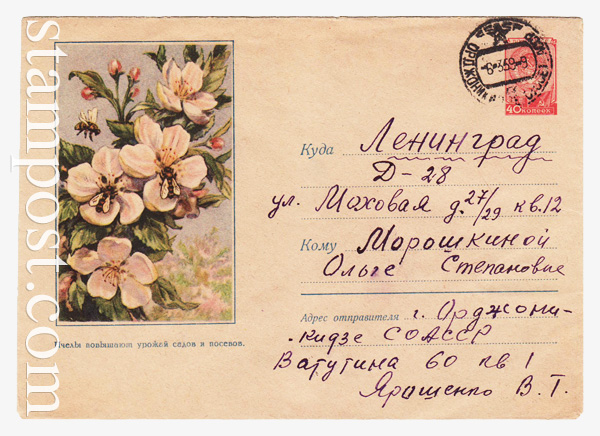 stampost.com
Пчелы повышают урожай садов и посевов.
40 КОПЕЕК
Куда Ленинград
Д-28
ул. Моховая д. 27/29 кв. 12
Кому Морошкиной
Ольге Степановне
Адрес отправителя г. Орджони-
-кидзе СОАССР
Ватутина 60 кв 1
Ярошенко В. Т.